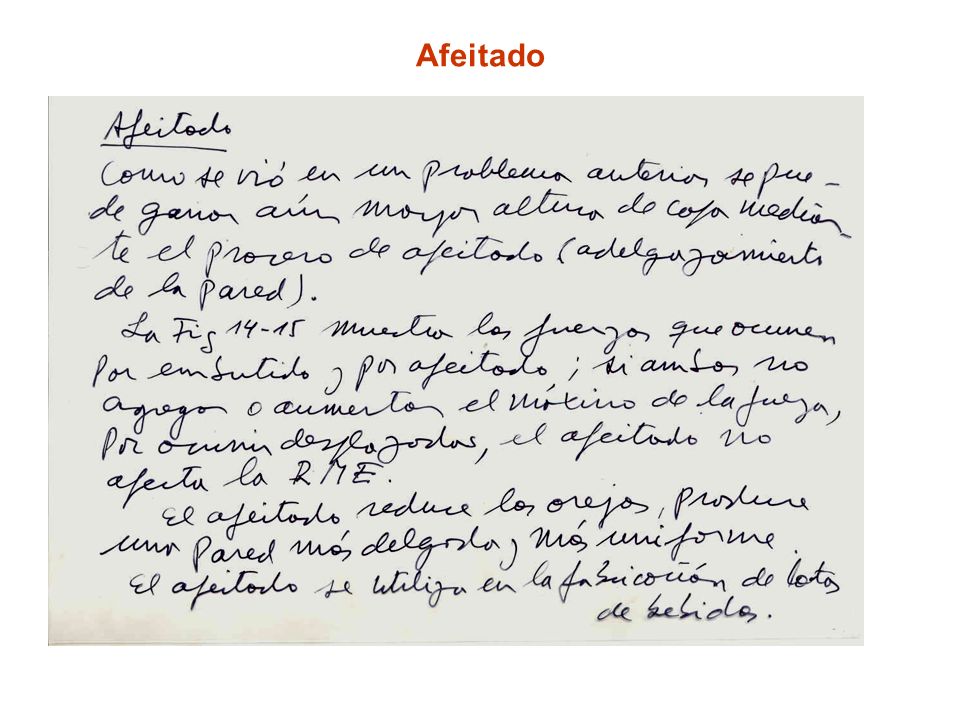 Afeitado
Afeitado
Como se vió en un problema anterior se pue-
de ganar aún mayor altura de copa median-
te el proceso de afeitado (adelgazamiento
de la pared).
La Fig 14-15 muestra las fuerzas que ocurren
por embutido y por afeitado; si ambas no
agregan o aumentan el máximo de la fuerza,
por ocurrir desplazadas, el afeitado no
afecta la RME.
El afeitado reduce las orejas, produce
una pared más delgada y más uniforme.
El afeitado se utiliza en la fabricación de latas
de bebidas.